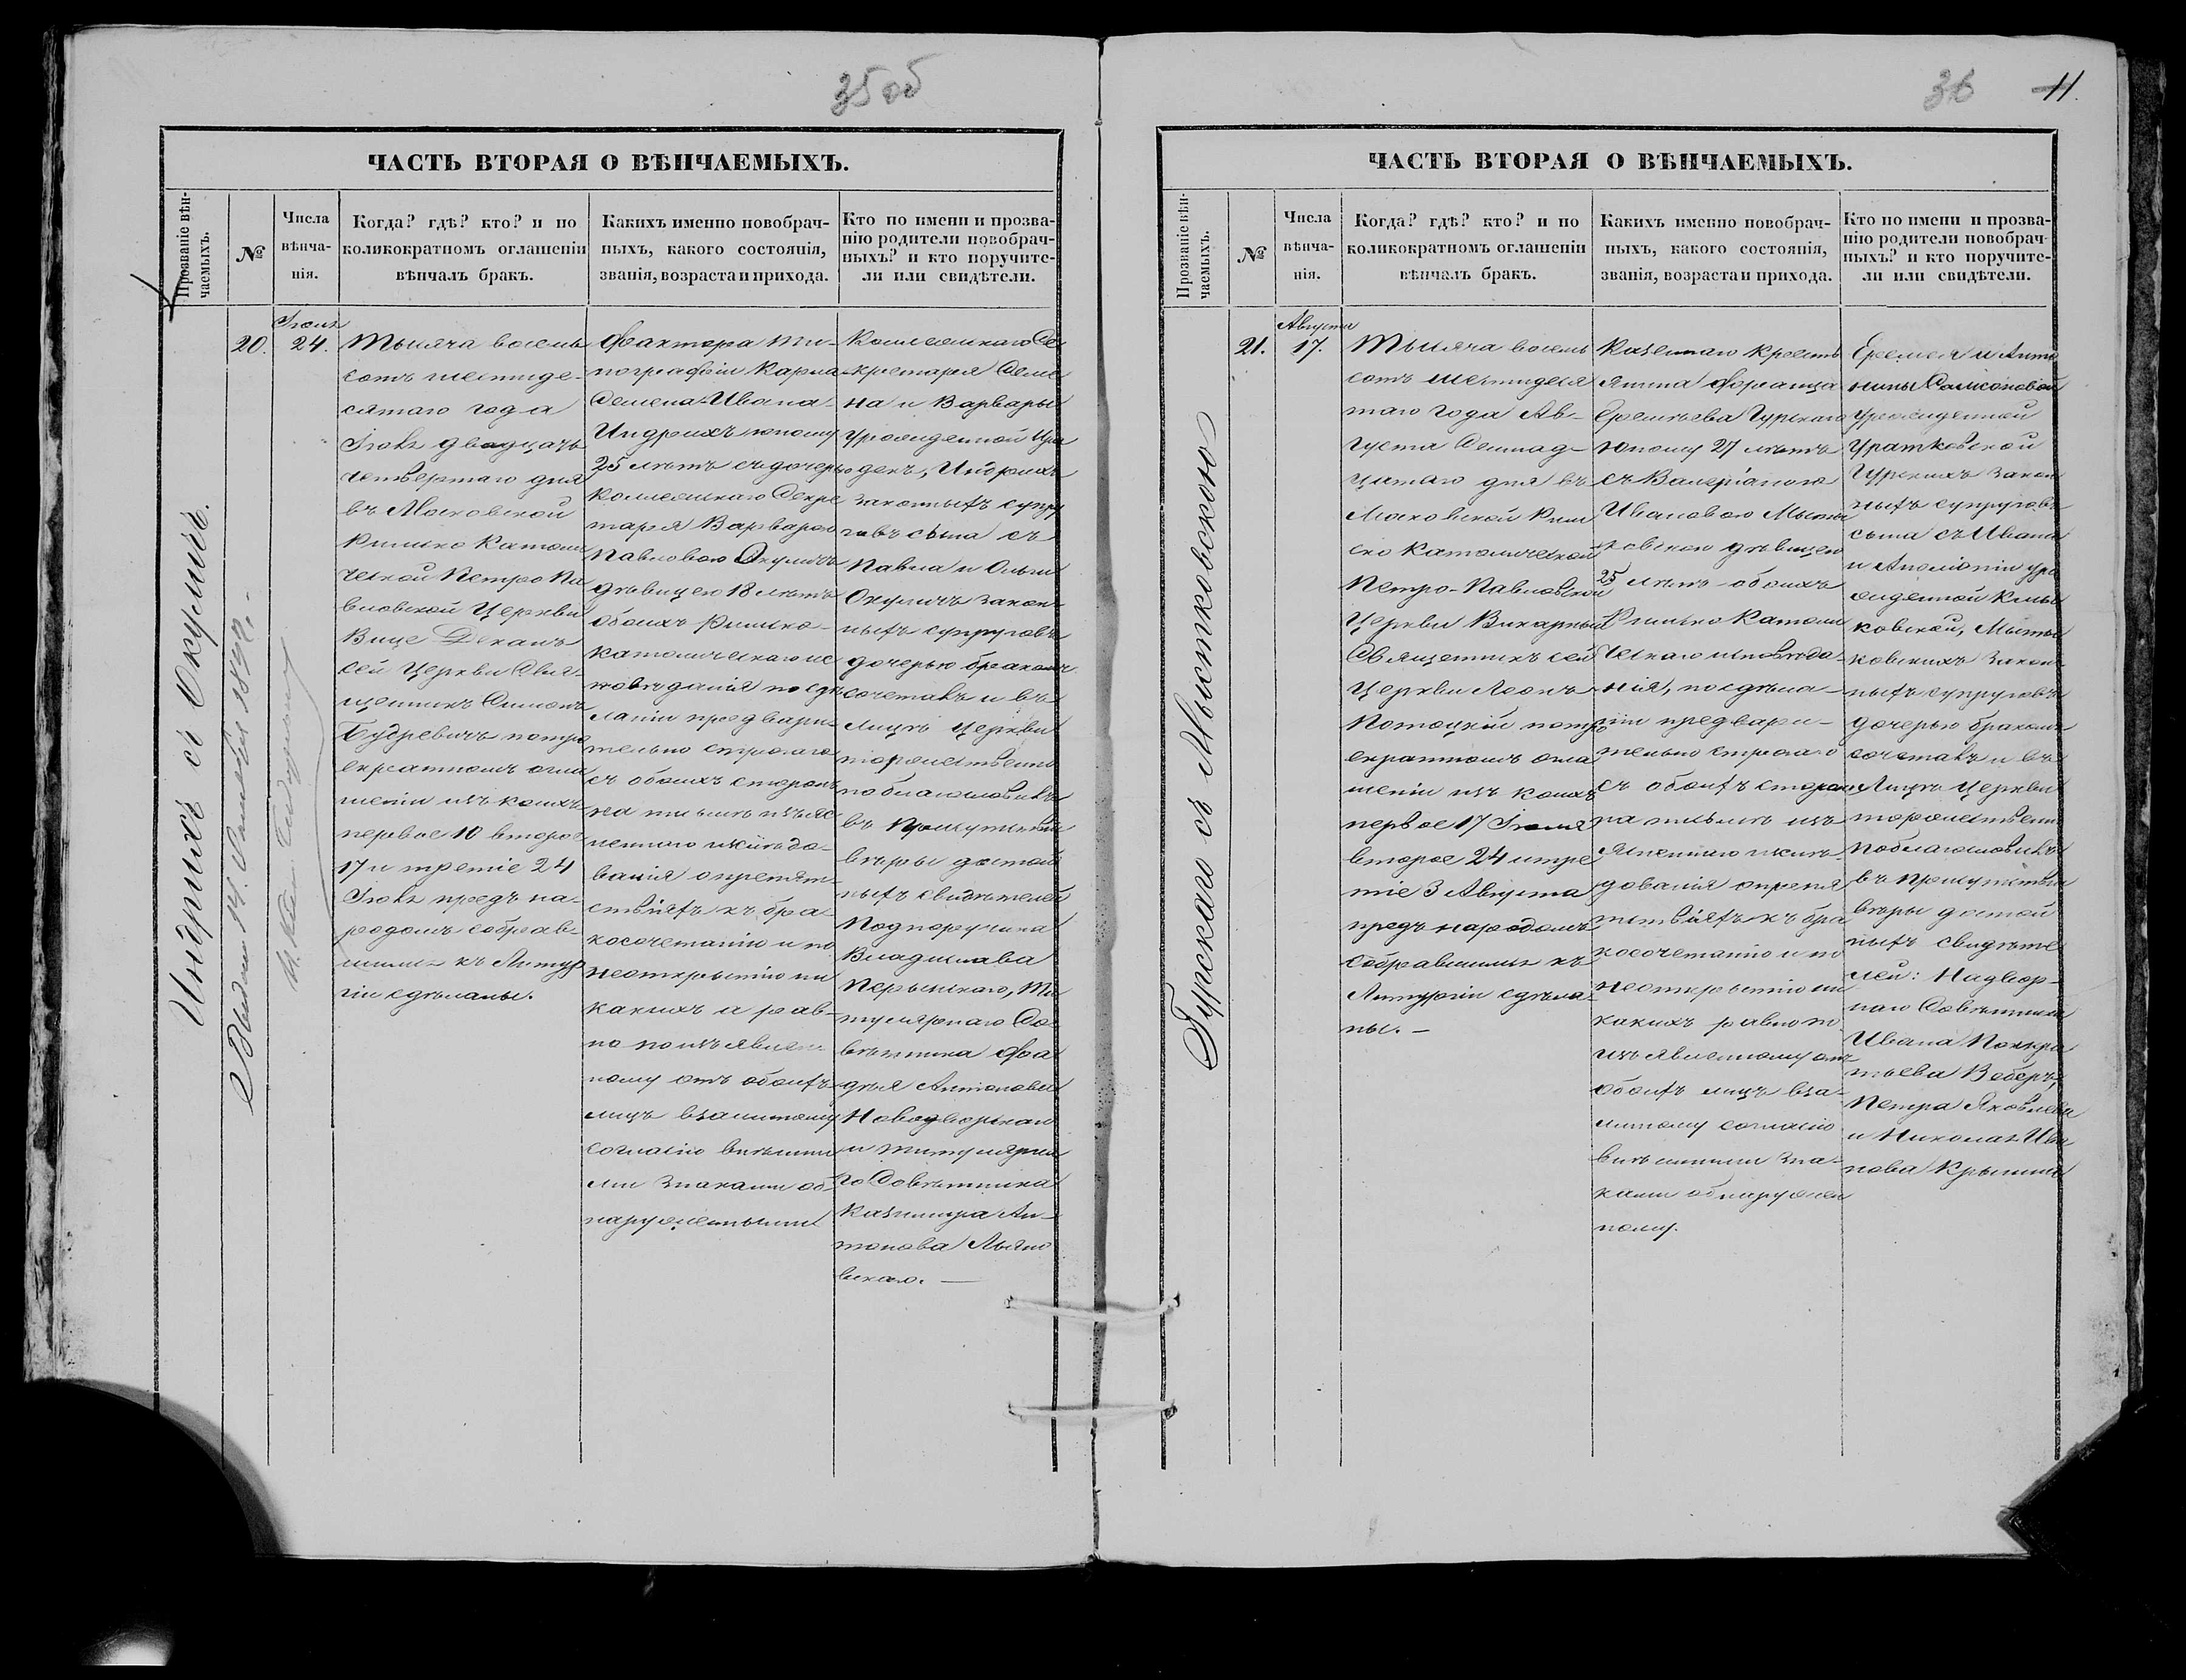 35 об
ЧАСТЬ ВТОРАЯ О ВѢНЧАЕМЫХЪ.
Прозваніе вѣн-
чаемыхъ.
№
Числа
вѣнча-
нія.
Когда? гдѣ? кто? и по
коликократномъ оглашеніи
вѣнчалъ бракъ.
Какихъ именно новобрач-
ныхъ, какого состоянія,
званія, возраста и прихода.
Кто по имени и прозва-
нію родители новобрач-
ныхъ? и кто поручите-
ли или свидѣтели.
Индрихъ съ Окуличъ.
20.
Іюля
24.
Тысяча восемь
сотъ шестиде-
сятаго года
Іюля двадцать
четвертаго дня
въ Московской
Римско Католи
ческой Петро Па
вловской Церкви
Вице Деканъ
сей Церкви Свя-
щенникъ Симонъ
Будревичъ по тре
екратномъ огла
шеніи изъ коихъ
первое 10 второе
17 и третіе 24
Іюля предъ на-
родомъ собрав-
шимся къ Литур
гіи сдѣланы.
Фактора Ти-
пографіи Карла
Семена-Ивана
Индрихъ юношу
25 лѣтъ съ дочерью
Коллежскаго Секре
таря Варварою
Павловою Окуличъ
дѣвицею 18 лѣтъ
обоихъ Римско-
католическаго ис
повѣданія по сдѣ
ланіи предвари-
тельно строгаго
съ обоихъ сторонъ
на письмѣ изъяс
неннаго изслѣдо-
ванія о препят-
ствіяхъ къ бра-
косочетанію и по
неоткрытію ни
какихъ а рав-
но по изъявлен
ному отъ обоихъ
лицъ взаимному
согласію внѣшни
ми знаками об-
наруженными
Коллежскаго Се
кретаря Семе
на и Варвары
урожденной
Индрихъ
законныхъ супру
говъ сына съ
Павла и Ольги
Окуличъ закон-
ныхъ супруговъ
дочерью бракомъ
сочеталъ и въ
лицѣ Церкви
торжественно
поблагословилъ
въ присутствіи
вѣры достой
ныхъ свидѣтелей
Подпоручика
Владислава
Ти
тулярнаго Со-
вѣтника Фа
дѣя Антонова
Новодворскаго
и титулярна
го Совѣтника
Казимира Ан-
тонова
вскаго. —
36
11.
ЧАСТЬ ВТОРАЯ О ВѢНЧАЕМЫХЪ.
Прозваніе вѣн-
чаемыхъ.
№
Числа
вѣнча-
нія.
Когда? гдѣ? кто? и по
коликократномъ оглашеніи
вѣнчалъ бракъ.
Какихъ именно новобрач-
ныхъ, какого состоянія,
званія, возраста и прихода.
Кто по имени и прозва-
нію родители новобрач-
ныхъ? и кто поручите-
ли или свидѣтели.
Гурскаго съ Мыстковскою
21.
Августа
17.
Тысяча восемь
сотъ шестидеся
таго года Ав-
густа Семнад-
цатаго дня въ
Московской Рим
ско Католической
Петро-Павловской
Церкви Викарный
Священникъ сей
Церкви Леонъ
Потоцкій по тре
екратномъ огла
шеніи изъ коихъ
первое 17 Іюля
второе 24 и тре
тіе 3 Августа
предъ народомъ
собравшимся къ
Литургіи сдѣла-
ны. —
Казеннаго крестъ
янина Франца
Еремѣева Гурскаго
юношу 27 лѣтъ
съ Валеріаною
Ивановою Мыст
ковскою дѣвицею
25 лѣтъ обоихъ
Римско Католи
ческаго исповѣда-
нія, по сдѣла-
ніи предвари-
тельно строгаго
съ обоихъ сторонъ
на письмѣ изъ
ясненнаго изслѣ-
дованія о препя
тствіяхъ къ бра
косочетанію и по
неоткрытію ни
какихъ равно по
изъявленному отъ
обоихъ лицъ вза-
имному согласію
внѣшними зна-
ками обнаружен
ному.
Еремея и Анто
нины Самсоновой
урожденной
Гурскихъ закон
ныхъ супруговъ
сына съ Ивана
и Аполоніи уро
жденной
ковской, Мыст
ковскихъ закон
ныхъ супруговъ
дочерью бракомъ
сочеталъ и въ
Лицѣ Церкви
торжественно
поблагословилъ
въ присутствіи
вѣры достой
ныхъ свидѣте
лей: Надвор-
наго Совѣтника
Ивана
Веберъ,
Петра Яковлева
и Николая Ива
нова